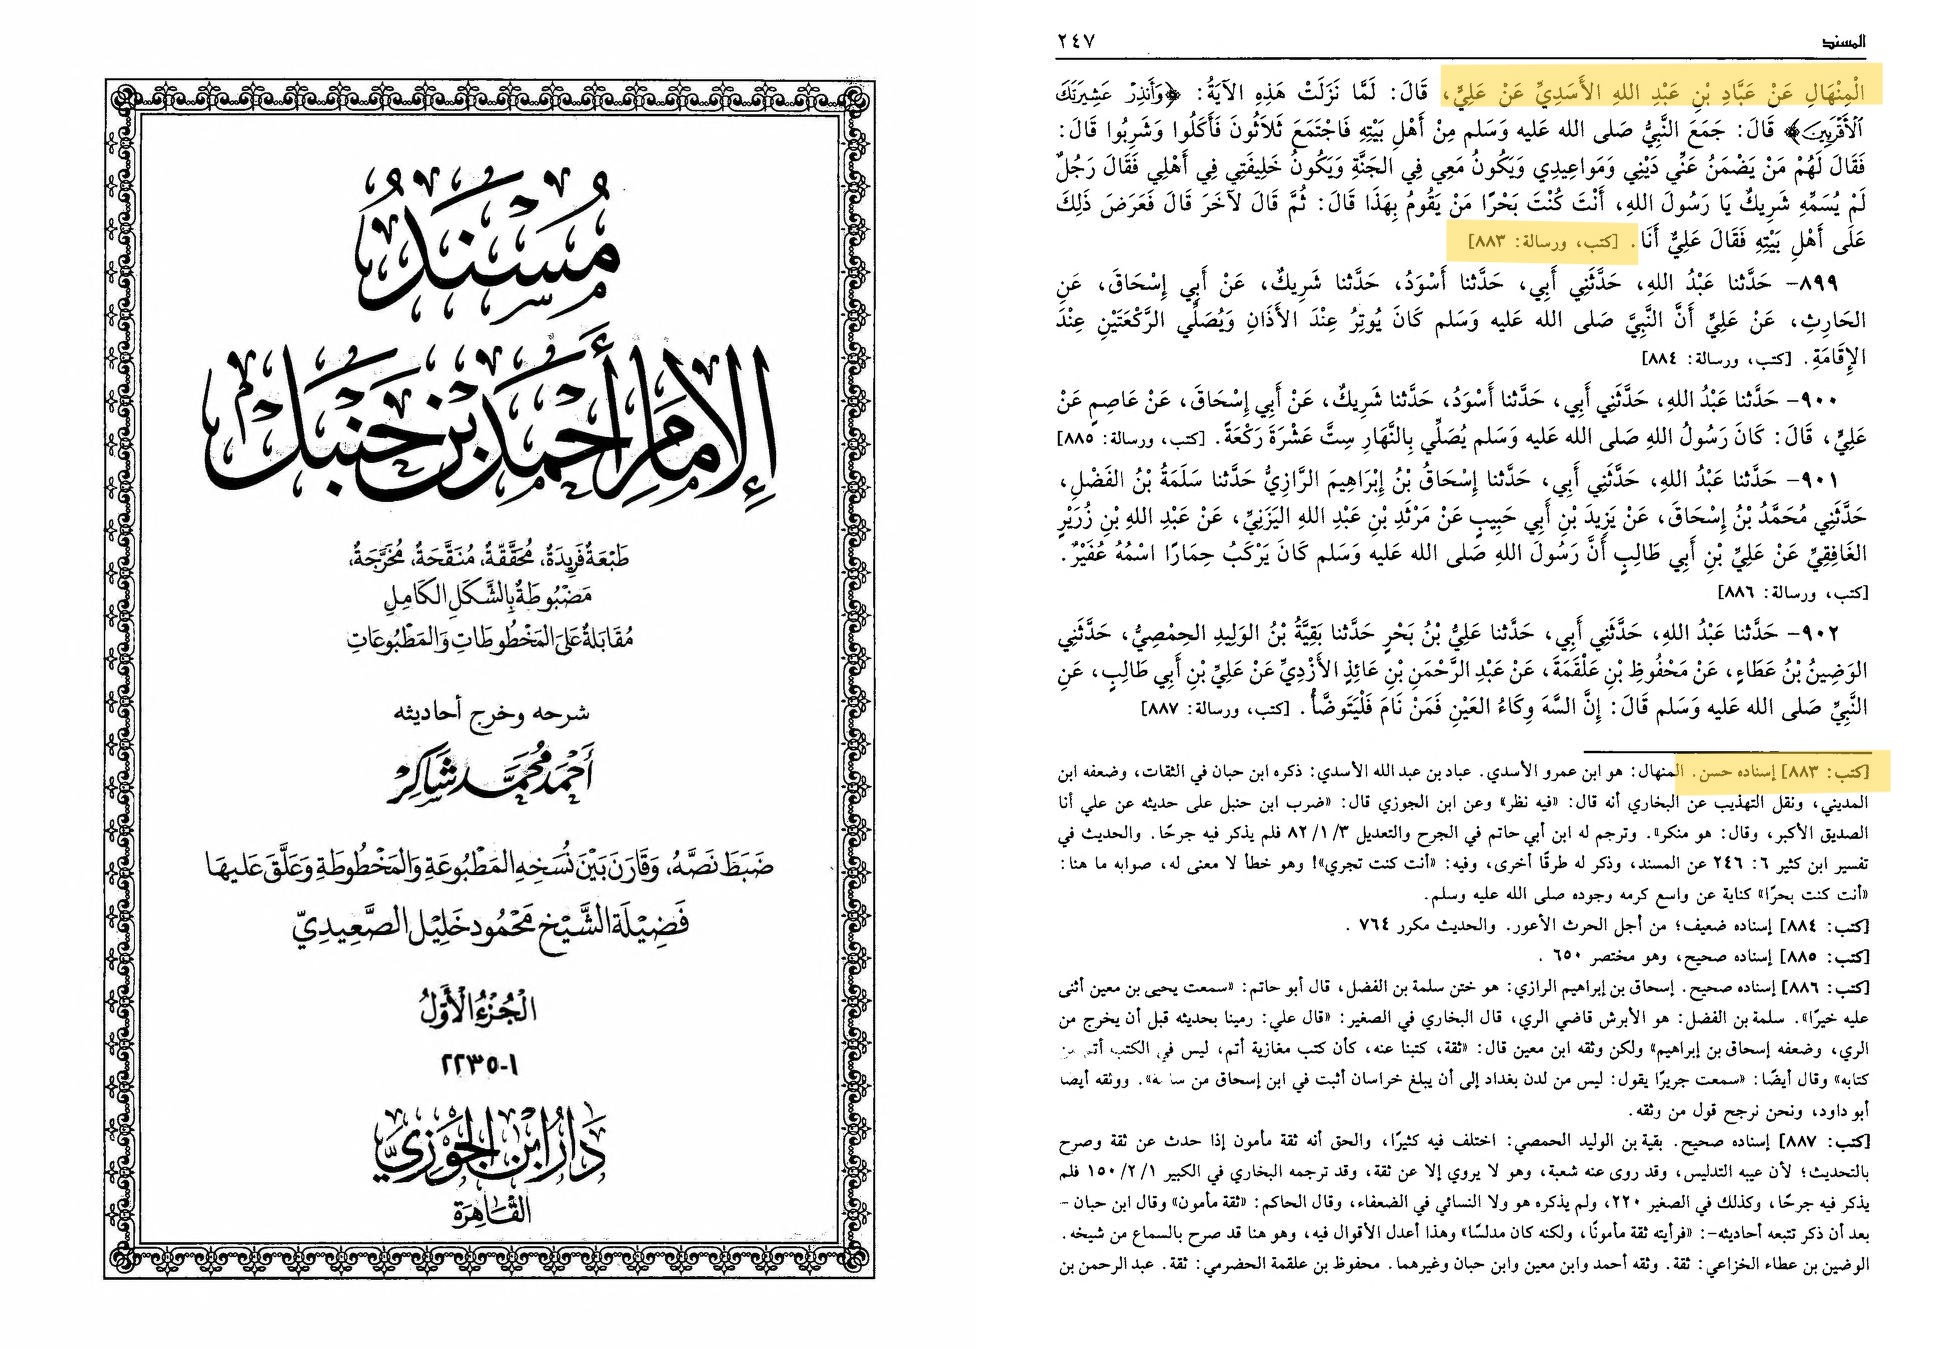 مُسْنَدُ
الإِمَامِ أَحْمَدَ بْنِ حَنْبَلٍ
طَبْعَةٌ فَرِيدَةٌ، مُحَقَّقَةٌ، مُنَقَّحَةٌ، مُخَرَّجَةٌ،
مَضْبُوطَةٌ بِالشَّكَلِ الكَامِلِ
مُقَابَلَةٌ عَلَى المَخْطُوطَاتِ وَالمَطْبُوعَاتِ
شرحه وخرج أحاديثه
أَحْمَد مُحَمَّد شَاكِرْ
ضَبَطَ نَصَّهُ، وَقَارَنَ بَيْنَ نُسَخِهِ المَطْبُوعَةِ وَالمَخْطُوطَةِ وَعَلَّقَ عَلَيهَا
فَضِيلَةُ الشَّيْخِ مَحْمُود خَلِيْل الصَّعِيدِيّ
الْجُزْءُ الْأَوَّلُ
١-٢٢٣٥
دَارُ ابْنِ الجَوْزِي
القَاهِرَة
المسند ٢٤٧
الْمِنْهَالِ عَنْ عَبَّادِ بْنِ عَبْدِ اللهِ الأَسَدِيِّ عَنْ عَلِيٍّ، قَالَ: لَمَّا نَزَلَتْ هَذِهِ الآيَةُ: ﴿وَأَنذِرْ عَشِيرَتَكَ
ٱلْأَقْرَبِينَ﴾ قَالَ: جَمَعَ النَّبِيُّ صَلى الله عَليه وَسَلم مِنْ أَهْلِ بَيْتِهِ فَاجْتَمَعَ ثَلاَثُونَ فَأَكَلُوا وَشَرِبُوا قَالَ:
فَقَالَ لَهُمْ مَنْ يَضْمَنُ عَنِّي دَيْنِي وَمَواعِيدِي وَيَكُونُ مَعِي فِي الجَنَّةِ وَيَكُونُ خَلِيفَتِي فِي أَهْلِي فَقَالَ رَجُلٌ
لَمْ يُسَمِّهِ شَرِيكٌ يَا رَسُولَ اللهِ، أَنْتَ كُنْتَ بَحْرًا مَنْ يَقُومُ بِهَذَا قَالَ: ثُمَّ قَالَ لآخَرَ قَالَ فَعَرَضَ ذَلِكَ
عَلَى أَهْلِ بَيْتِهِ فَقَالَ عَلِيٌّ أَنَا. [كتب، ورسالة: ٨٨٣]
٨٩٩- حَدَّثنا عَبْدُ اللهِ، حَدَّثَنِي أَبِي، حَدَّثنا أَسْوَدُ، حَدَّثنا شَرِيكٌ، عَنْ أَبِي إِسْحَاقَ، عَنِ
الحَارِثِ، عَنْ عَلِيٍّ أَنَّ النَّبِيَّ صَلى الله عَليه وَسَلم كَانَ يُوتِرُ عِنْدَ الأَذَانِ وَيُصَلِّي الرَّكْعَتَيْنِ عِنْدَ
الإِقَامَةِ. [كتب، ورسالة: ٨٨٤]
٩٠٠- حَدَّثنا عَبْدُ اللهِ، حَدَّثَنِي أَبِي، حَدَّثنا أَسْوَدُ، حَدَّثنا شَرِيكٌ، عَنْ أَبِي إِسْحَاقَ، عَنْ عَاصِمٍ عَنْ
عَلِيٍّ، قَالَ: كَانَ رَسُولُ اللهِ صَلى الله عَليه وَسَلم يُصَلِّي بِالنَّهَارِ سِتَّ عَشْرَةَ رَكْعَةً. [كتب، ورسالة: ٨٨٥]
٩٠١- حَدَّثنا عَبْدُ اللهِ، حَدَّثَنِي أَبِي، حَدَّثنا إِسْحَاقُ بْنُ إِبْرَاهِيمَ الرَّازِيُّ حَدَّثنا سَلَمَةُ بْنُ الفَضْلِ،
حَدَّثَنِي مُحَمَّدُ بْنُ إِسْحَاقَ، عَنْ يَزِيدَ بْنِ أَبِي حَبِيبٍ عَنْ مَرْثَدِ بْنِ عَبْدِ اللهِ اليَزَنِيِّ، عَنْ عَبْدِ اللهِ بْنِ زُرَيْرٍ
الغَافِقِيِّ عَنْ عَلِيِّ بْنِ أَبِي طَالِبٍ أَنَّ رَسُولَ اللهِ صَلى الله عَليه وَسَلم كَانَ يَرْكَبُ حِمَارًا اسْمُهُ عُفَيْرٌ.
[كتب، ورسالة: ٨٨٦]
٩٠٢- حَدَّثنا عَبْدُ اللهِ، حَدَّثَنِي أَبِي، حَدَّثنا عَلِيُّ بْنُ بَحْرٍ حَدَّثنا بَقِيَّةُ بْنُ الوَلِيدِ الحِمْصِيُّ، حَدَّثَنِي
الوَضِينُ بْنُ عَطَاءٍ، عَنْ مَحْفُوظِ بْنِ عَلْقَمَةَ، عَنْ عَبْدِ الرَّحْمَنِ بْنِ عَائِذٍ الأَزْدِيِّ عَنْ عَلِيِّ بْنِ أَبِي طَالِبٍ، عَنِ
النَّبِيِّ صَلى الله عَليه وَسَلم قَالَ: إِنَّ السَّهَ وِكَاءُ العَيْنِ فَمَنْ نَامَ فَلْيَتَوَضَّأْ. [كتب، ورسالة: ٨٨٧]
[كتب: ٨٨٣] إسناده حسن. المنهال: هو ابن عمرو الأسدي. عباد بن عبد الله الأسدي: ذكره ابن حبان في الثقات، وضعفه ابن
المديني، ونقل التهذيب عن البخاري أنه قال: «فيه نظر» وعن ابن الجوزي قال: «ضرب ابن حنبل على حديثه عن علي أنا
الصديق الأكبر، وقال: هو منكر». وترجم له ابن أبي حاتم في الجرح والتعديل ٣/ ١/ ٨٢ فلم يذكر فيه جرحًا. والحديث في
تفسير ابن كثير ٦: ٢٤٦ عن المسند، وذكر له طرقًا أخرى، وفيه: «أنت كنت تجري»! وهو خطأ لا معنى له، صوابه ما هنا:
«أنت كنت بحرًا» كناية عن واسع كرمه وجوده صلى الله عليه وسلم.
[كتب: ٨٨٤] إسناده ضعيف؛ من أجل الحرث الأعور. والحديث مكرر ٧٦٤ .
[كتب: ٨٨٥] إسناده صحيح، وهو مختصر ٦٥٠ .
[كتب: ٨٨٦] إسناده صحيح. إسحاق بن إبراهيم الرازي: هو ختن سلمة بن الفضل، قال أبو حاتم: «سمعت يحيى بن معين أثنى
عليه خيرًا». سلمة بن الفضل: هو الأبرش قاضي الري، قال البخاري في الصغير: «قال علي: رمينا بحديثه قبل أن يخرج من
الري، وضعفه إسحاق بن إبراهيم» ولكن وثقه ابن معين قال: «ثقة، كتبنا عنه، كأن كتب مغازية أتم، ليس في الكتب أتم من
كتابه» وقال أيضًا: «سمعت جريرًا يقول: ليس من لدن بغداد إلى أن يبلغ خراسان أثبت في ابن إسحاق من سلمة». ووثقه أيضا
أبو داود، ونحن نرجح قول من وثقه.
[كتب: ٨٨٧] إسناده صحيح. بقية بن الوليد الحمصي: اختلف فيه كثيرًا، والحق أنه ثقة مأمون إذا حدث عن ثقة وصرح
بالتحديث؛ لأن عيبه التدليس، وقد روى عنه شعبة، وهو لا يروي إلا عن ثقة، وقد ترجمه البخاري في الكبير ١/ ٢/ ١٥٠ فلم
يذكر فيه جرحًا، وكذلك في الصغير ٢٢٠، ولم يذكره هو ولا النسائي في الضعفاء، وقال الحاكم: «ثقة مأمون» وقال ابن حبان –
بعد أن ذكر تتبعه أحاديثه–: «فرأيته ثقة مأمونًا، ولكنه كان مدلسًا» وهذا أعدل الأقوال فيه، وهو هنا قد صرح بالسماع من شيخه.
الوضين بن عطاء الخزاعي: ثقة. وثقه أحمد وابن معين وابن حبان وغيرهما. محفوظ بن علقمة الحضرمي: ثقة. عبد الرحمن بن